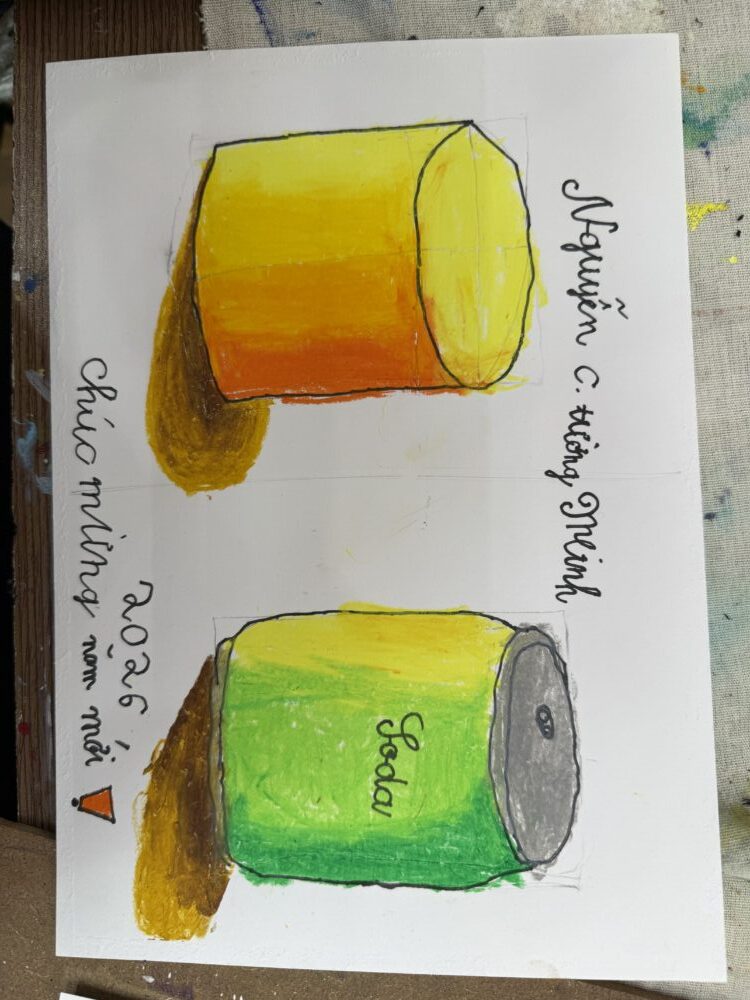 Nguyễn C. Tường Minh
Soda
2026
chúc mừng năm mới !